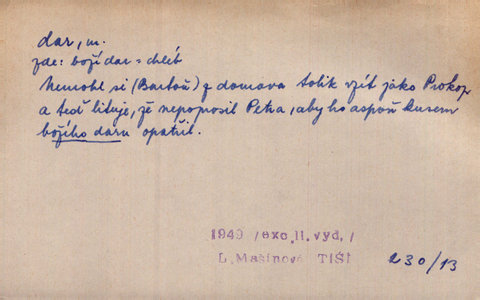 dar, m.
zde: boží dar = chléb
Nemohl si (Bartoň) z domova tolik vzít jako Prokop
a teď lituje, že nepoprosil Petra, aby ho aspoň kusem
božího daru opatřil.
1940 /exc.II.vyd./
L. Mašínová TIŠI
230/13